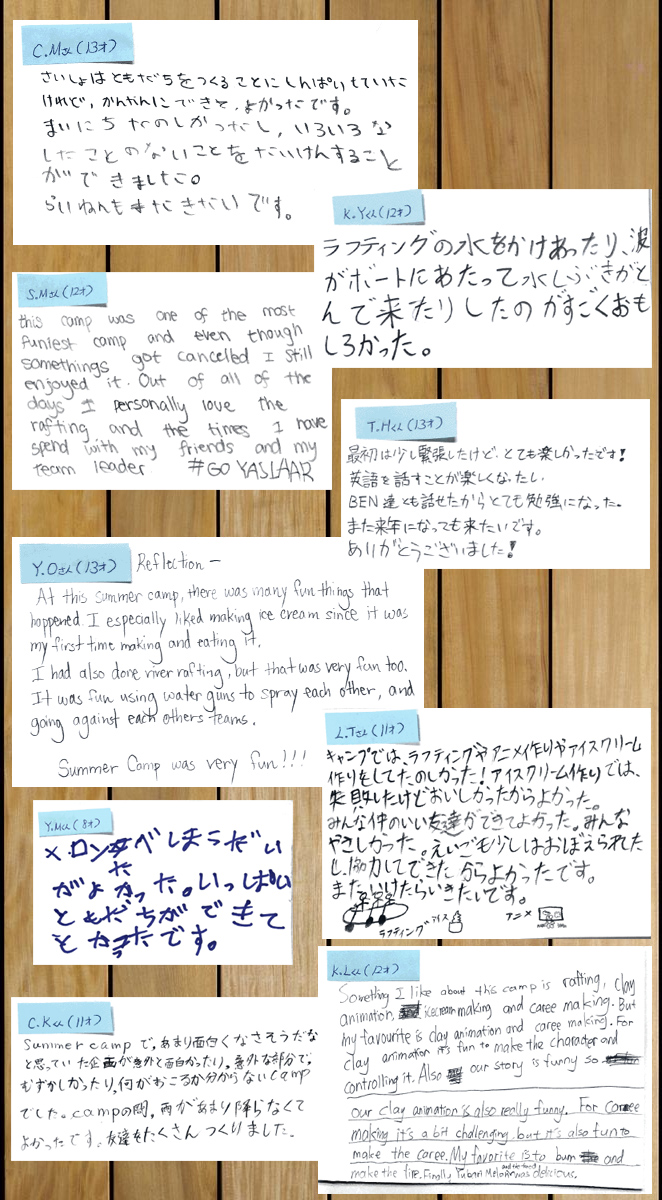 C.Mさん(13才)
さいしょはともだちをつくることにしんぱいしていた
けれど、かんたんにできて、よかったです。
まいにちたのしかったし、いろいろな
したことのないことをたいけんすること
ができました。
らいねんもまたきたいです。
K.Yくん(12才)
ラフティングの水をかけあったり、波
がボートにあたって水しぶきがと
んで来たりしたのがすごくおも
しろかった。
S.Mさん(12才)
this camp was one of the most
funiest camp and even though
somethings got canceled I still
enjoyed it. Out of all of the
days I personally love the
rafting and the times I have
spend with my friends and my
team leader #GO YASLAAR
T.Hくん(13才)
最初は少し緊張したけど、とても楽しかったです!
英語を話すことが楽しくなったし
BEN達とも話せたからとても勉強になった。
また来年になっても来たいです。
ありがとうございました!
Y.Oさん(13才)
Reflection-
At this summer camp, there was many fun things that
happened. I especially liked making ice cream since it was
my first time making and eating it.
I had also done river rafting, but that was very fun too.
It was fun using water guns to spray each other, and
going against each others teams.
Summer Camp was very fun!!!
L.Tさん(11才)
キャンプでは、ラフティングやアニメ作りやアイスクリーム
作りをしてたのしかった!アイスクリーム作りでは、
失敗したけどおいしかったからよかった。
みんな仲のいい友達ができてよかった。みんな
やさしかった。えいごも少しはおぼえられた
し、協力してできたからよかったです。
またいけたらいきたいです。
ラフティング アイス アニメ
Y.Mくん(8才)
メロンたべしまうだい
がよかった。いっぱい
ともだちができて
よかったです。
C.Kくん(11才)
Summer campで、あまり面白くなさそうだな
と思っていた企画が意外と面白かったり、意外な部分で、
むずかしかったり、何がおこるか分からないcamp
でした。campの間、雨があまり降らなくて
よかったです。友達をたくさんつくりました。
K.Lくん(12才)
Something I like about this camp is rafting, clay
animation, icecream making and caree making. But
my favourite is clay animation and caree making. For
clay animation it's fun to make the character and
controlling it. Also our story is funny so
our clay animation is also really funny. For Caree
making it's a bit challenging but it's also fun to
make the caree. My favorite is to burn and
make the fire. Finally Yubari Melon was delicious.